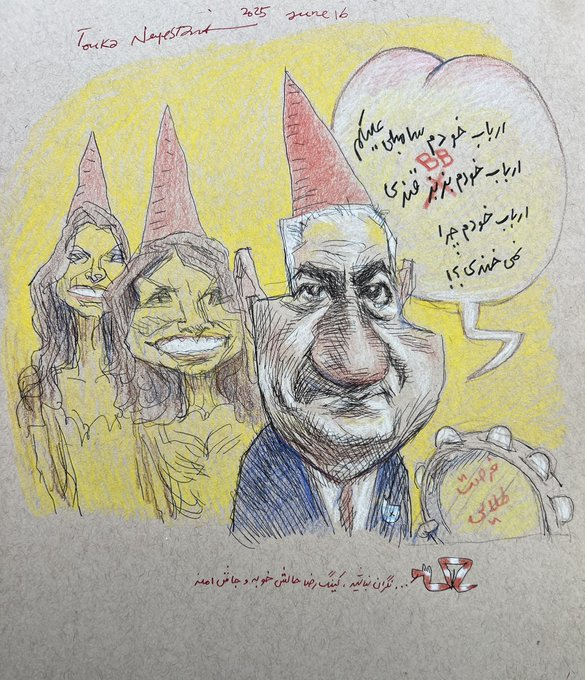 Touka Neyestani 2025 June 16
ارباب خودم سامبلی علیکم
BB
ارباب خودم بزبز قندی
ارباب خودم چرا
نمی خندی؟!
فرصت
طلایی
...نگران نباشید، کینگ رضا حالش خوبه و جاش امنه